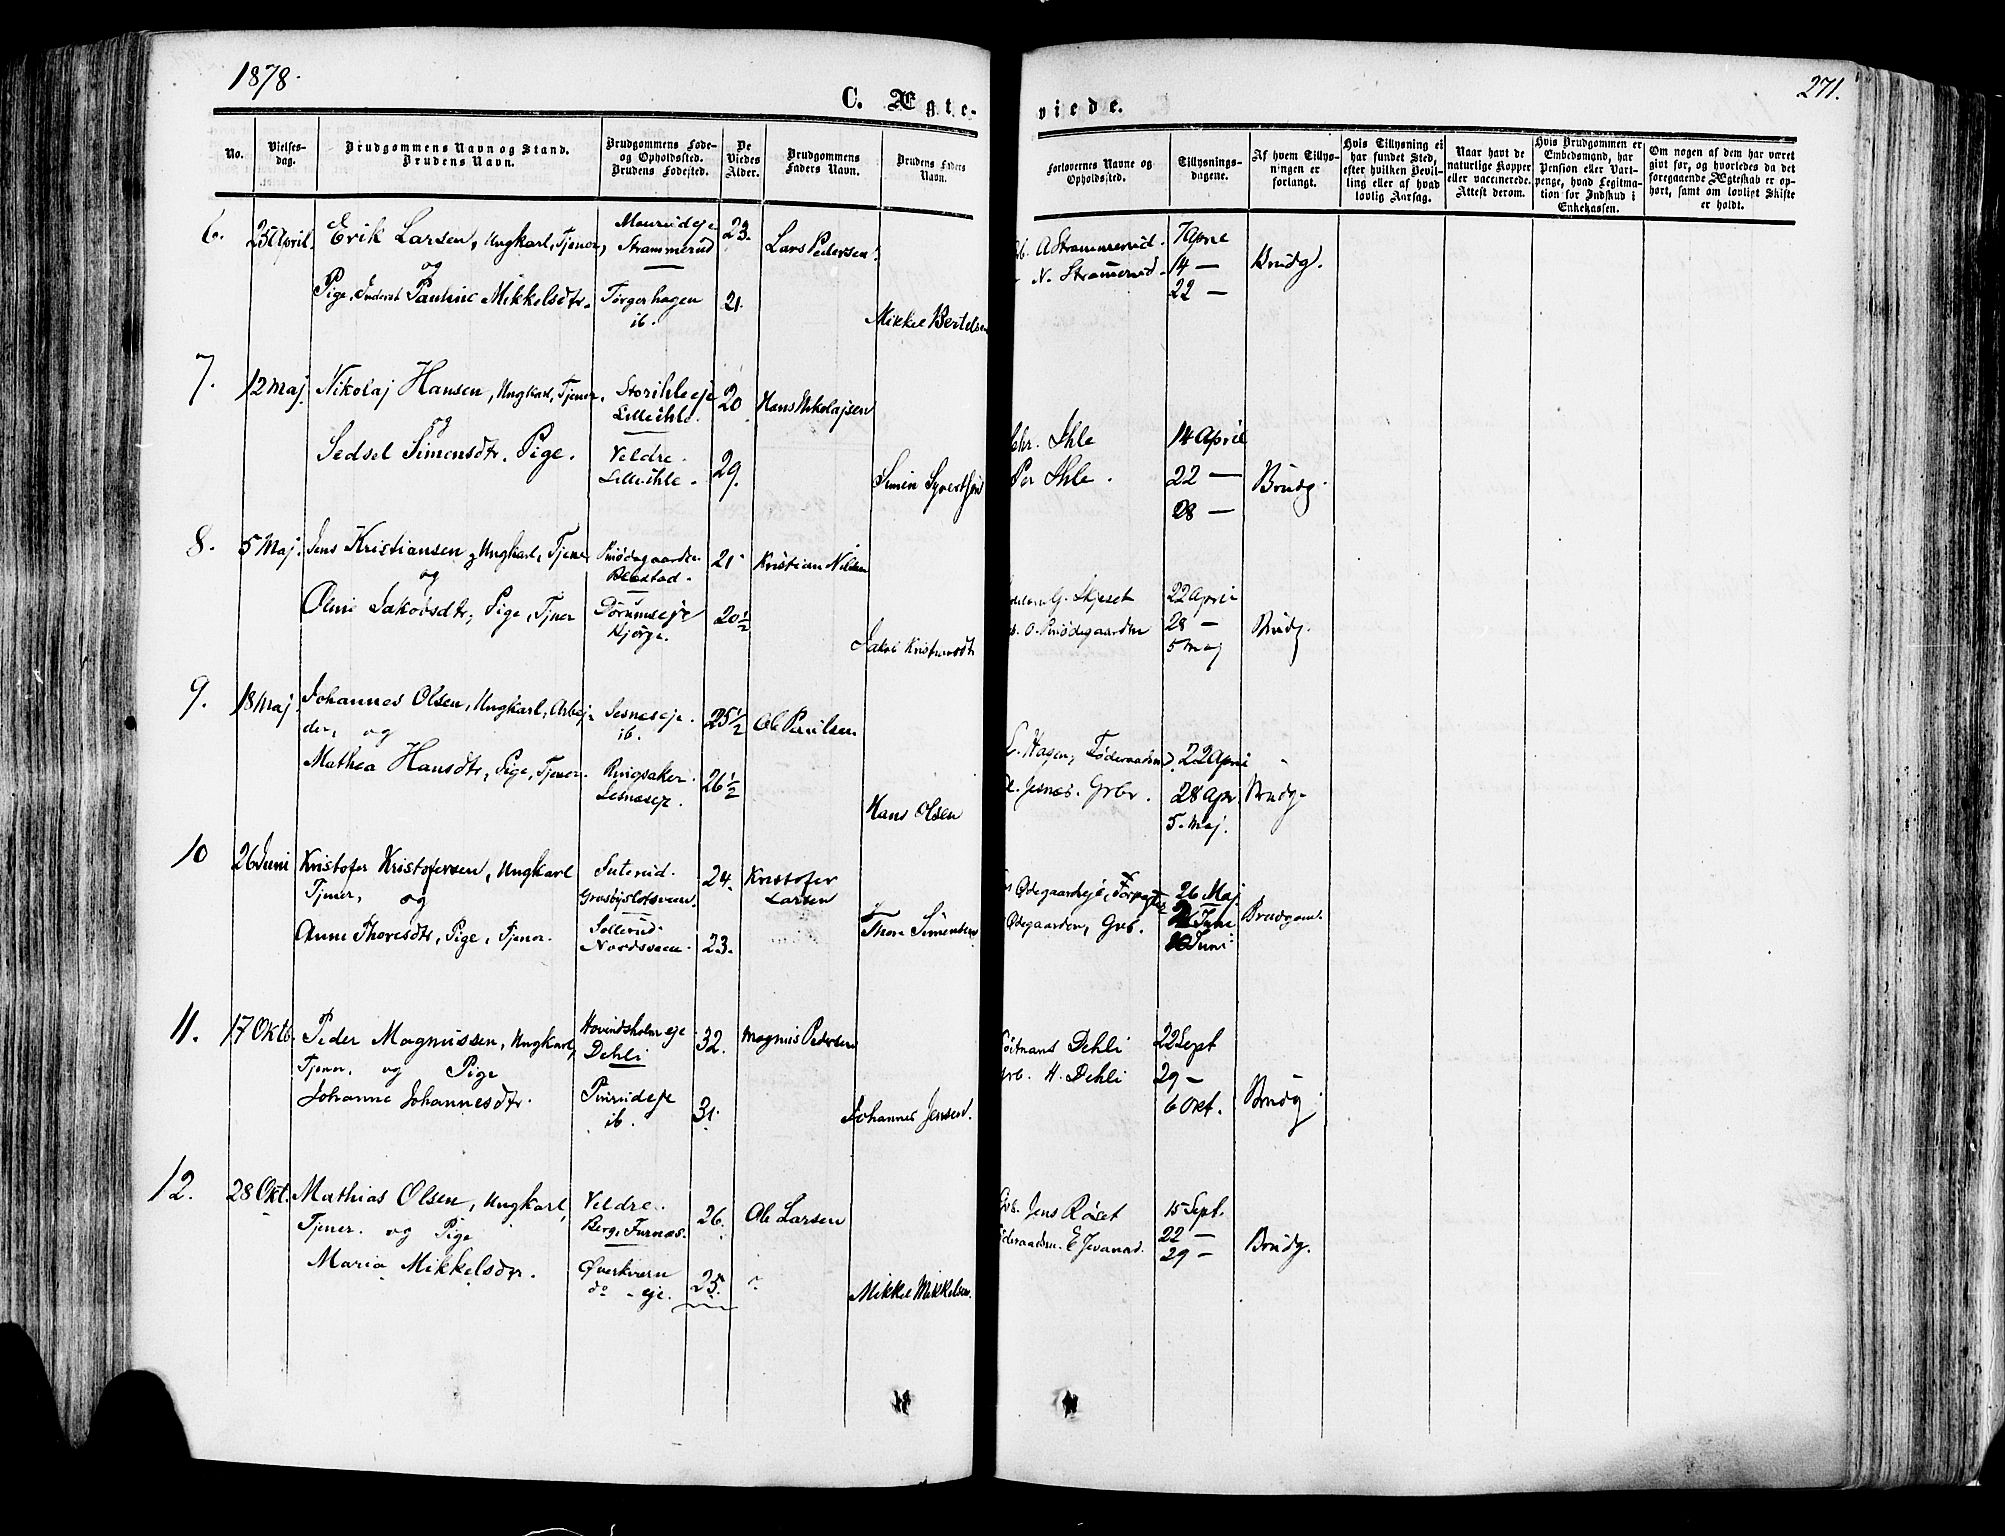 1878.
271.
C. Ægte-
viede.
No.
Vielses-
dag.
Brudgommens Navn og Stand.
Brudens Navn.
Brudgommens Føde-
og Opholdssted.
Brudens Fødested.
De
Viedes
Alder.
Brudgommens
Faders Navn.
Brudens Faders
Navn.
Forlovernes Navne og
Opholdssted.
Tillysnings-
dagene.
Af hvem Tillys-
ningen er
forlangt.
Hvis Tillysning ei
har fundet Sted,
efter hvilken Bevil-
ling eller af hvad
lovlig Aarsag.
Naar havt de
naturlige Kopper
eller vaccinerede.
Attest derom.
Hvis Brudgommen er
Embedsmand, har
Pension eller Vart-
penge, hvad Legitima-
tion for Indskud i
Enkekassen.
Om nogen af dem har været
givt før, og hvorledes da det
foregaaende Ægteskab er op-
hørt, samt om lovligt Skifte
er holdt.
6. 25 April. Erik Larsen, Ungkarl, Tjener,
og
Pige, Pauline Mikkelsdtr.
Strammerud
Torgerhagen
ib.
23.
21.
Lars Pedersen.
Mikkel Bertelsen
A Strammerud.
N. Strammerud.
7 April
14 —
22 —
Brudg.
7. 12 Maj. Nikolaj Hansen, Ungkarl, Tjener.
og
Sedsel Simensdtr. Pige.
Storihleeje
Lilleihle.
Veldre.
Lilleihle.
20
29.
Hans Nikolajsen
Simen Syvertsen
Chr. Ihle
Per Ihle.
14 April
22 —
28 —
Brudg.
8. 5 Maj. Jens Kristiansen, Ungkarl, Tjener
og
Olini Jakobsdtr, Pige, Tjener
Hjørge.
21
20½
Kristian Nilsen
Jakob
G. Skjeset
O.
22 April
28 —
5 Maj
Brudg.
9. 18 Maj. Johannes Olsen, Ungkarl, Arbej-
der, og
Mathea Hansdtr, Pige, Tjener.
Jesneseje.
ib.
Ringsaker.
Jesneseje.
25½
26½
Ole Paulsen
Hans Olsen
Hagen, Føderaadsm.
Jesnes. Grbr.
22 April
28 Apr.
5. Maj.
Brudg.
10 26 Juni Kristofer Kristofersen, Ungkarl
Tjener, og
Anne Thoresdtr, Pige, Tjener.
Suterud.
Sollerud.
Nordsveen.
24.
23.
Kristofer
Larsen
Thore Simensen
Ødegaardseje,
Ødegaarden, Grb.
26 Maj.
2 Juni
10 Juni
Brudgom.
11. 17 Oktb. Peder Magnussen, Ungkarl,
Tjener. og Pige
Johanne Johannesdtr.
Hovindsholm eje
Dehli
Pinrudeje
ib.
32.
31.
Magnus Pedersen
Johannes Jensen.
Dehli
H. Dehli
22 Sept
29 —
6 Okt.
Brudg.
12. 28 Okt. Mathias Olsen, Ungkarl,
Tjener. og Pige
Maria Mikkelsdtr.
Veldre.
Berg, Furnæs.
Øverkvern
do - eje.
26.
25.
Ole Larsen
Mikkel Mikkelsen.
Grb. Jens Røset
15 Sept.
22 —
29 —
Brudg.